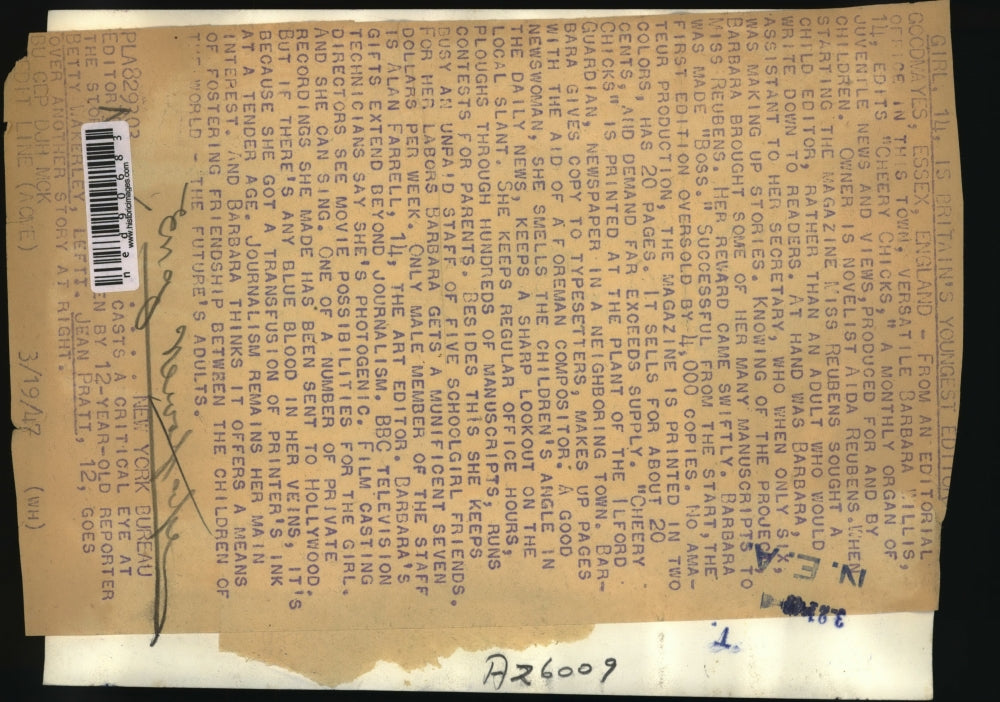 GIRL, 14, IS BRITAIN'S YOUNGEST EDITOR
GOODMAYES, ESSEX, ENGLAND - FROM AN EDITORIAL
OFFICE IN THIS TOWN, VERSATILE BARBARA WILLIS,
14, EDITS "CHEERY CHICKS," A MONTHLY ORGAN OF
JUVENILE NEWS AND VIEWS, PRODUCED FOR AND BY
CHILDREN. OWNER IS NOVELIST AIDA REUBENS. WHEN
STARTING THE MAGAZINE MISS REUBENS SOUGHT A
CHILD EDITOR, RATHER THAN AN ADULT WHO WOULD
WRITE DOWN TO READERS. AT HAND WAS BARBARA,
ASSISTANT TO HER SECRETARY, WHO WHEN ONLY SIX,
WAS MAKING UP STORIES. KNOWING OF THE PROJECT,
BARBARA BROUGHT SOME OF HER MANY MANUSCRIPTS TO
MISS REUBENS. HER REWARD CAME SWIFTLY. BARBARA
WAS MADE "BOSS." SUCCESSFUL FROM THE START, THE
FIRST EDITION OVERSOLD BY 4,000 COPIES. NO AMA-
TEUR PRODUCTION, THE MAGAZINE IS PRINTED IN TWO
COLORS, HAS 20 PAGES. IT SELLS FOR ABOUT 20
CENTS, AND DEMAND FAR EXCEEDS SUPPLY. "CHEERY
CHICKS" IS PRINTED AT THE PLANT OF THE ILFORD
GUARDIAN, NEWSPAPER IN A NEIGHBORING TOWN. BAR-
BARA GIVES COPY TO TYPESETTERS, MAKES UP PAGES
WITH THE AID OF A FOREMAN COMPOSITOR. A GOOD
NEWSWOMAN, SHE SMELLS THE CHILDREN'S ANGLE IN
THE DAILY NEWS, KEEPS A SHARP LOOKOUT ON THE
LOCAL SLANT. SHE KEEPS REGULAR OFFICE HOURS,
PLOUGHS THROUGH HUNDREDS OF MANUSCRIPTS, RUNS
CONTESTS FOR PARENTS. BESIDES THIS SHE KEEPS
BUSY AN UNPAID STAFF OF FIVE SCHOOLGIRL FRIENDS.
FOR HER LABORS BARBARA GETS A MUNIFICENT SEVEN
DOLLARS PER WEEK. ONLY MALE MEMBER OF THE STAFF
IS ALAN FARRELL, 14, THE ART EDITOR. BARBARA'S
GIFTS EXTEND BEYOND JOURNALISM. BBC TELEVISION
TECHNICIANS SAY SHE'S PHOTOGENIC. FILM CASTING
DIRECTORS SEE MOVIE POSSIBILITIES FOR THE GIRL.
AND SHE CAN SING. ONE OF A NUMBER OF PRIVATE
RECORDINGS SHE MADE HAS BEEN SENT TO HOLLYWOOD.
BUT IF THERE'S ANY BLUE BLOOD IN HER VEINS, IT'S
BECAUSE SHE GOT A TRANSFUSION OF PRINTER'S INK
AT A TENDER AGE. JOURNALISM REMAINS HER MAIN
INTEREST. AND BARBARA THINKS IT OFFERS A MEANS
OF FOSTERING FRIENDSHIP BETWEEN THE CHILDREN OF
THE WORLD - THE FUTURE'S ADULTS.
NEW YORK BUREAU
CASTS A CRITICAL EYE AT
EDITOR
THE EN BY 12-YEAR-OLD REPORTER
BETTY WAKERLEY, LEFT. JEAN PRATT, 12, GOES
OVER ANOTHER STORY AT RIGHT.
CREDIT LINE (ACME) 3/19/47 (WH)
www.historicimages.com
ned90683
N.E.A.
T.
A26009